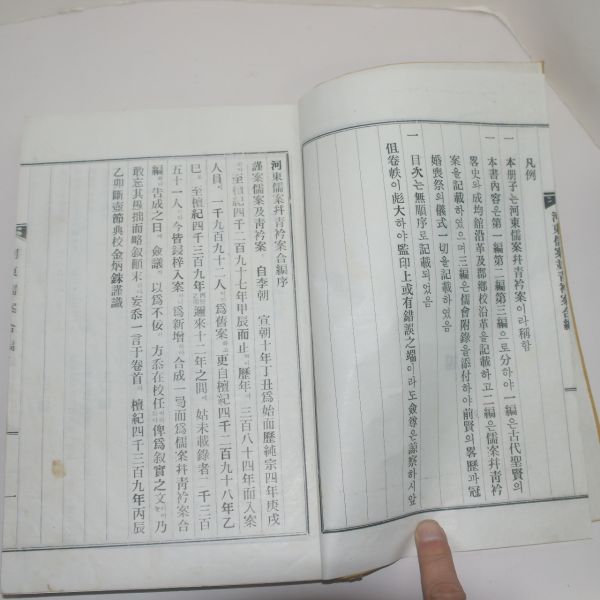 凡例
一 本册子는 河東儒案幷靑衿案이라稱함
一 本書內容은第一編第二編第三編으로分하야一編은古代聖賢의
畧史와成均舘沿革及郡鄕校沿革을記載하고二編은儒案幷靑衿
案을記載하였으며三編은儒會附錄을添付하야前賢의畧歷과冠
婚喪祭의儀式一切을記載하였음
一 目次는無順序로記載되었음
但卷帙이彪大하야監印上或有錯誤之端이라도僉尊은諒察하시앞
河東儒案幷靑衿案合編
河東儒案幷靑衿案合編序
謹案儒案及靑衿案 自李朝 宣朝十年丁丑爲始而歷純宗四年庚戌
至檀紀四千二百九十七年甲辰而止 歷年 三百八十四年而入案
人員 一千九百九十二人 爲舊案 更自檀紀四千二百九十八年乙
巳 至檀紀四千三百九年 邇來十二年之間 姑未載錄者二千三百
五十一人 今皆鋟梓入案 爲新增 合成一弓而爲儒案幷靑衿案合
編 告成之日 僉議 以爲不佞 方忝在校任 俾爲叙實之文 乃
敢忘其愚拙而略叙顚末 妄忝一言于卷首 檀紀四千三百九年丙辰
乙卯斷壺節典校金炳銖謹識